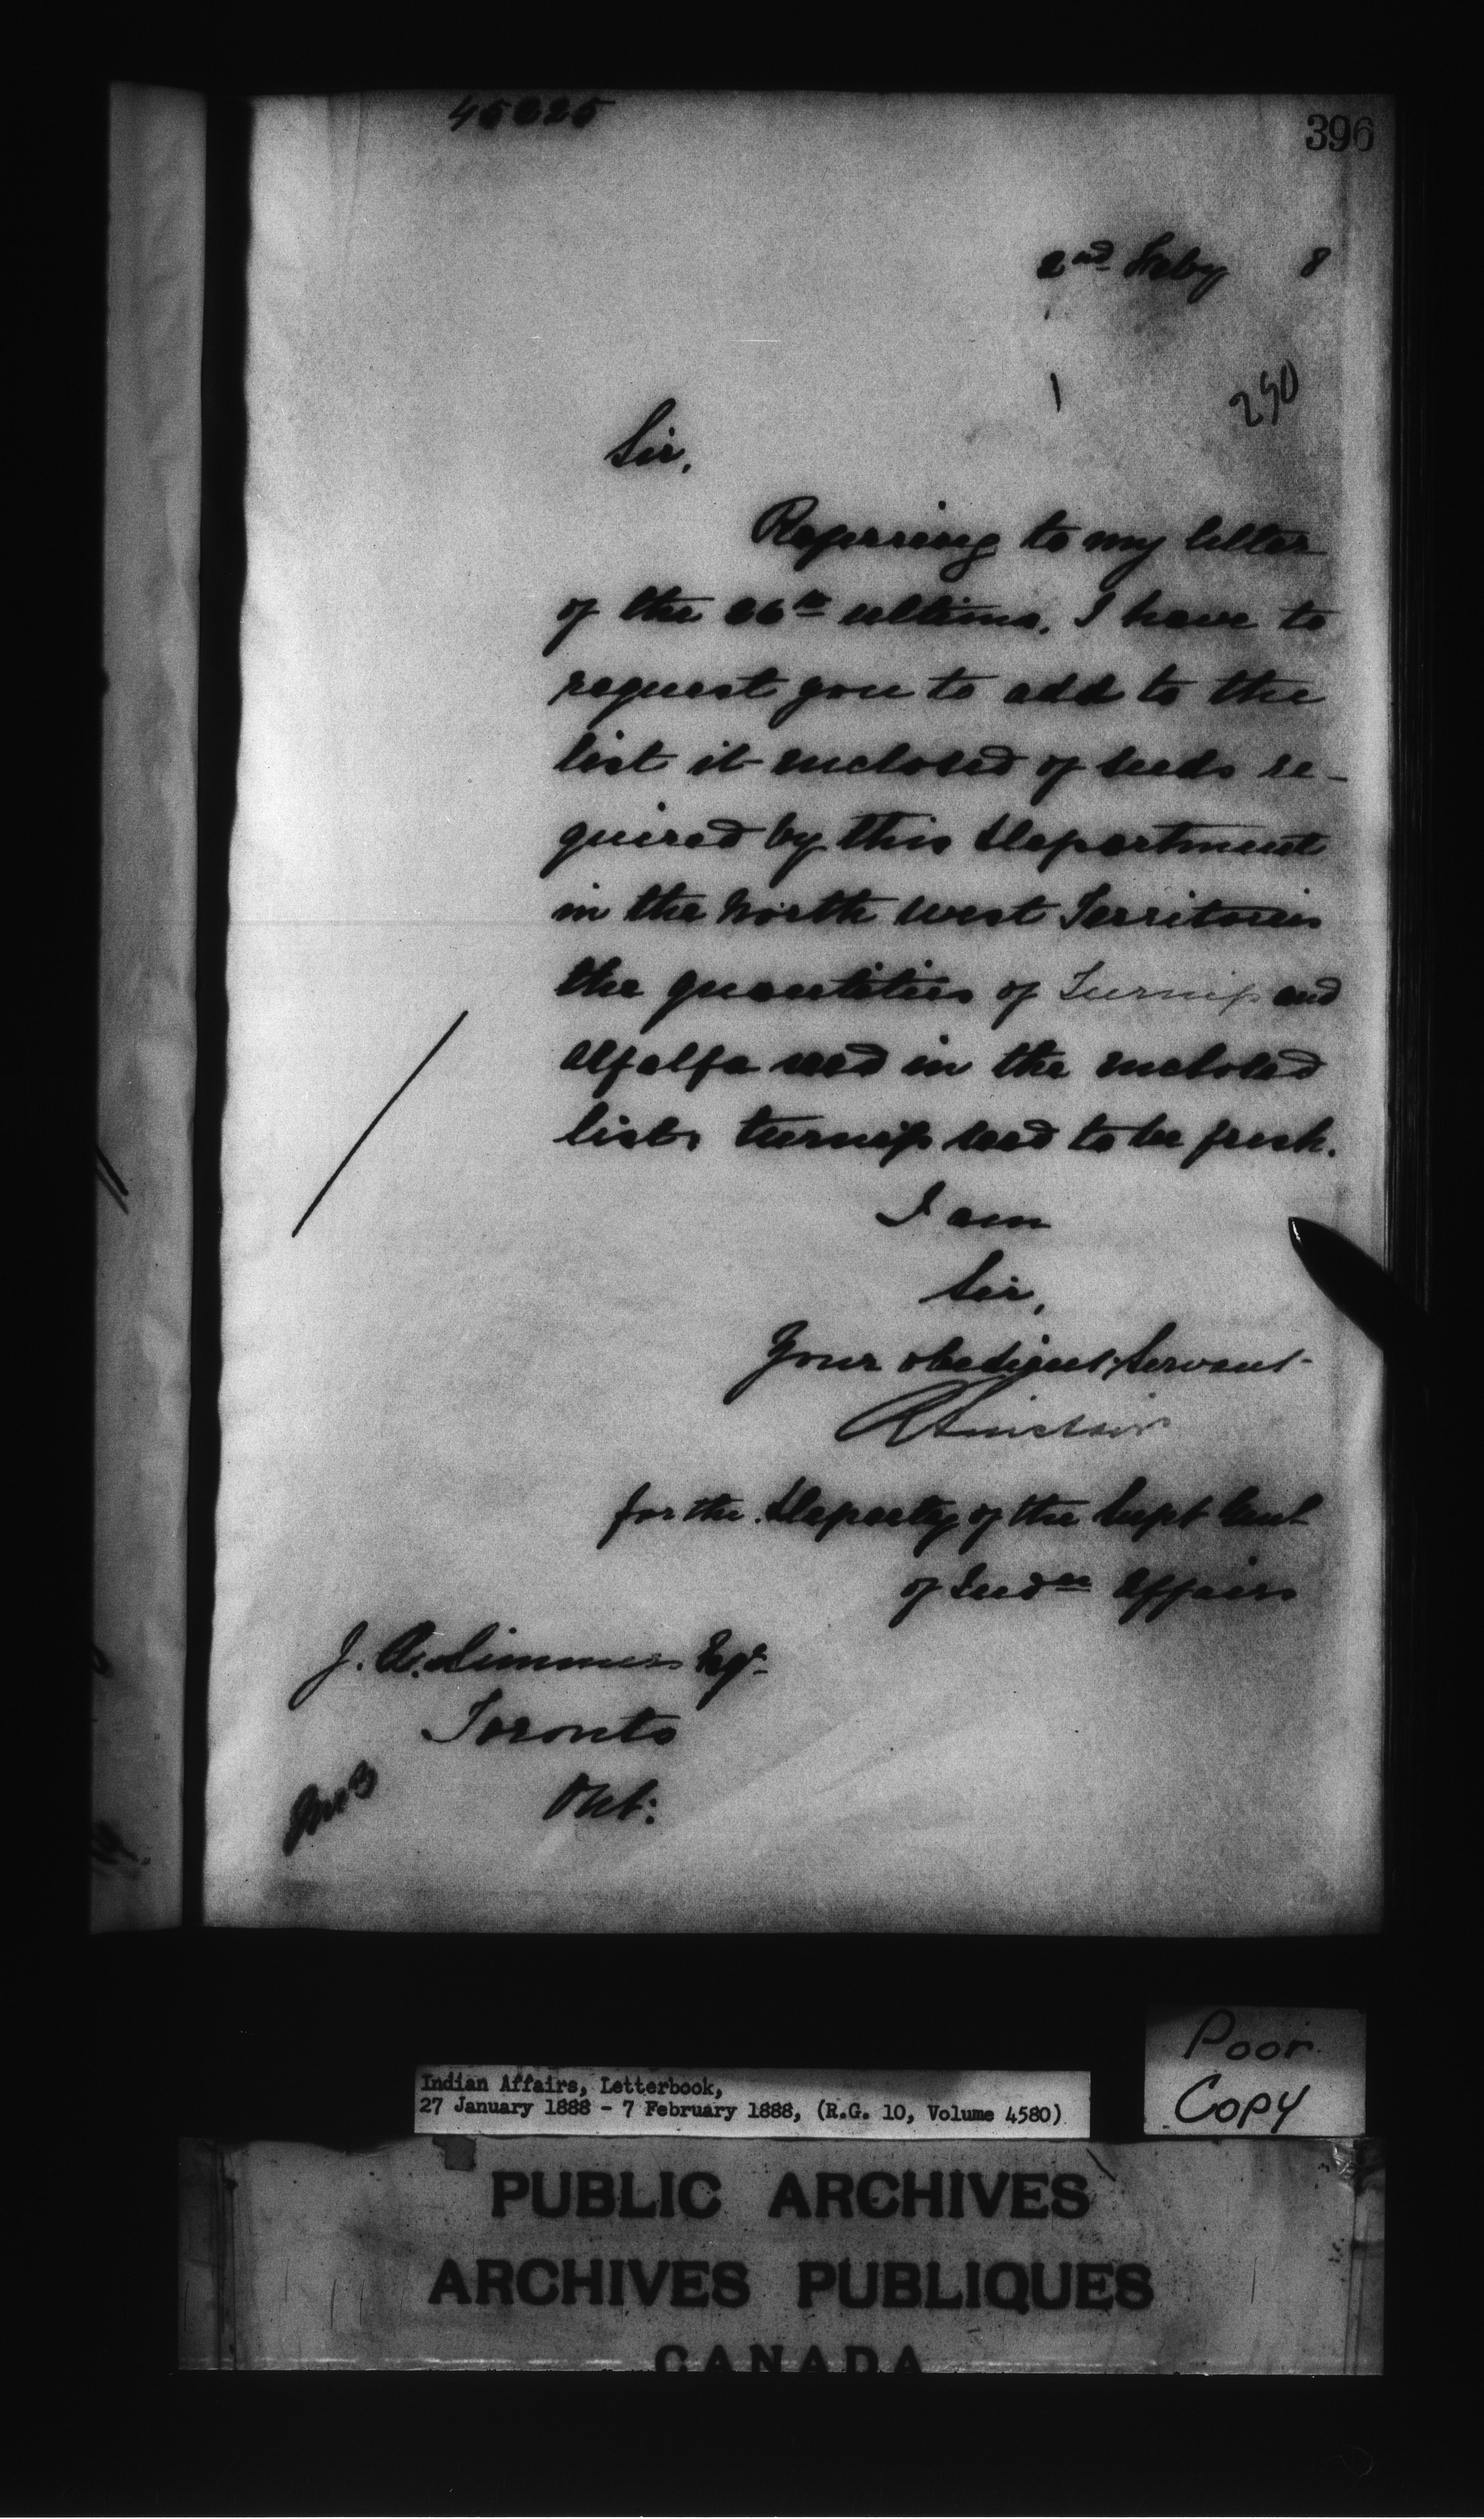 45225
396
2nd Feby 8
290
Sir,
Referring to my letter
of the 26th ultimo. I have to
request you to add to the
list it enclosed of seeds re-
quired by this Department
in the North West Territories
the quantities of Turnip and
Alfalfa seed in the enclosed
lists turnip seed to be fresh.
I am
Sir,
Your obedient Servant
R Sinclair
for the Deputy of the Supt Genl
of Indn Affairs
J. A. Simmers Esqr
Toronto
Ont:
Poor
Copy
Indian Affairs, Letterbook,
27 January 1888 - 7 February 1888, (R.G. 10, Volume 4580)
PUBLIC ARCHIVES
ARCHIVES PUBLIQUES
CANADA